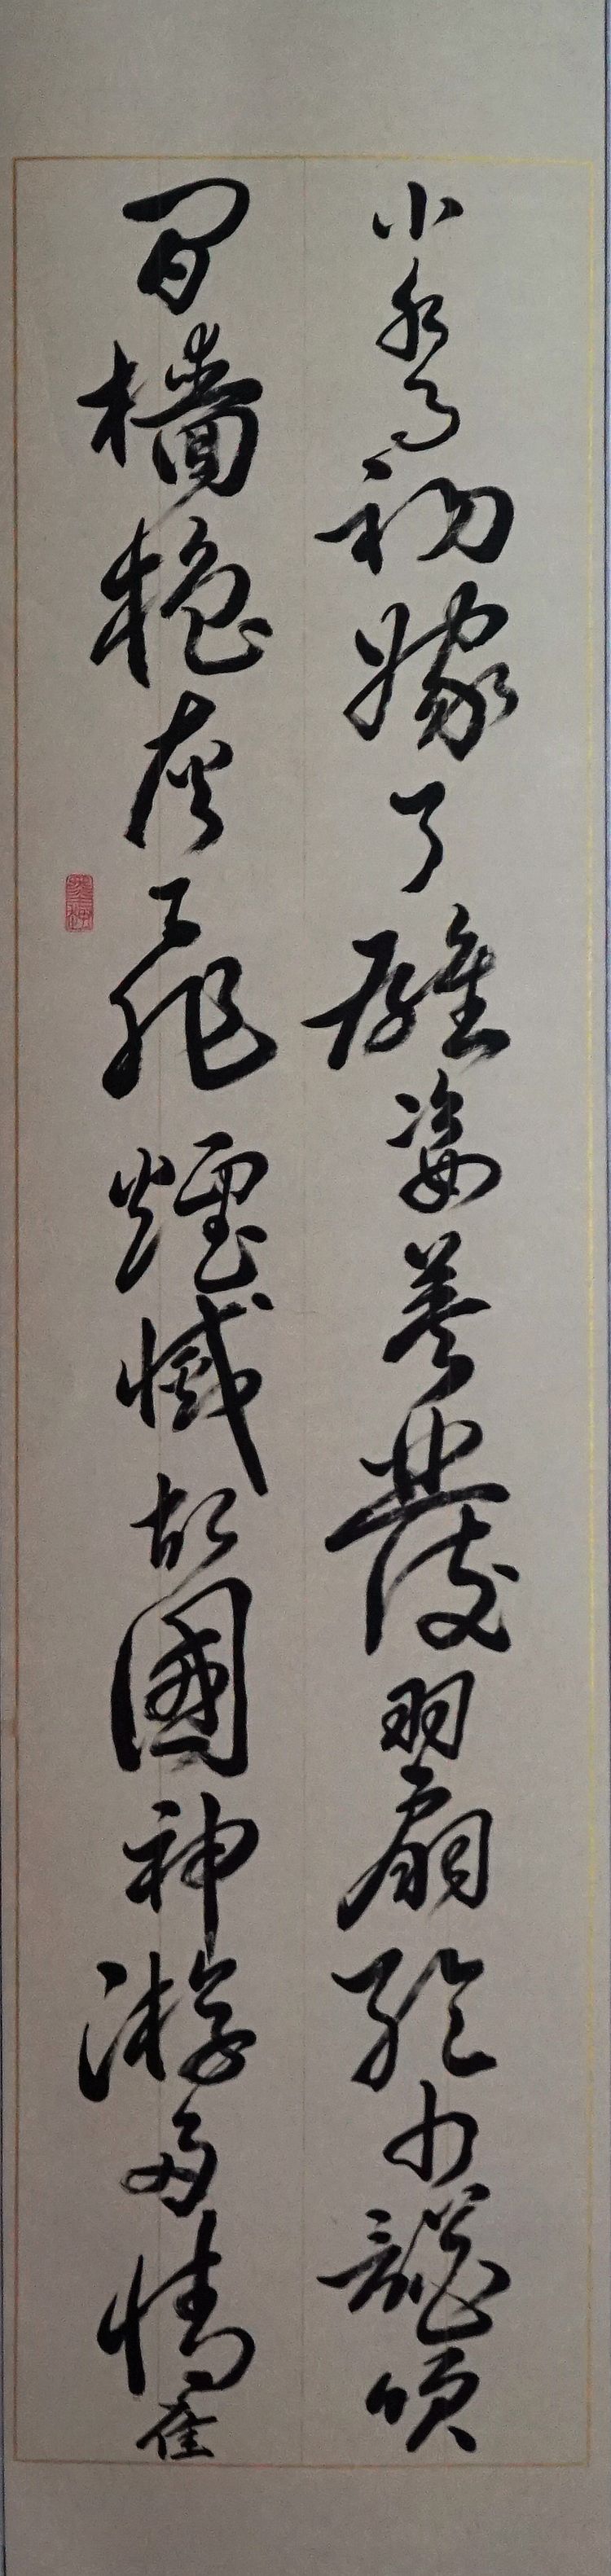 小喬初嫁了雄姿英發羽扇綸巾談咲
間檣櫓灰飛煙滅故國神游多情應